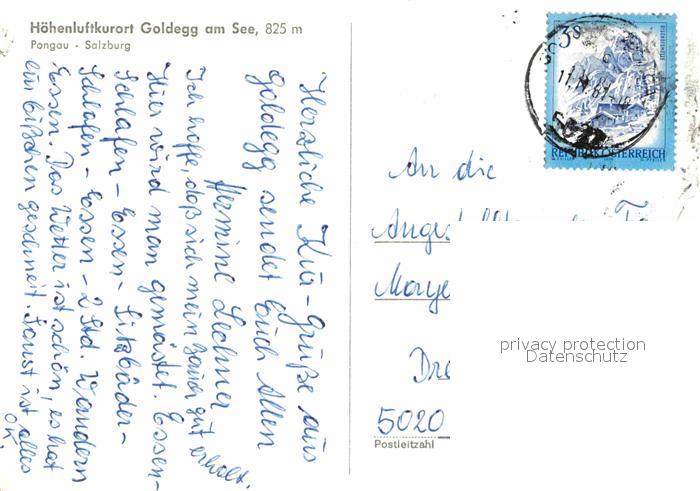 Höhenluftkurort Goldegg am See, 825 m
Pongau - Salzburg
Herzliche Kur-Grüße aus
Goldegg sendet Euch Allen
Hermine Lechner
Ich hoffe, daß sich mein gut erholt.
Hier wird man gemästet. Essen-
Schlafen - Essen - Sitzbäder -
Schlafen - Essen - 2 Std. Wandern
Essen. Das Wetter ist schön, es hat
ein bißchen geschneit. Sonst ist alles
O.K.
3 S
REPUBLIK ÖSTERREICH
An die
5020
Postleitzahl
privacy protection
Datenschutz